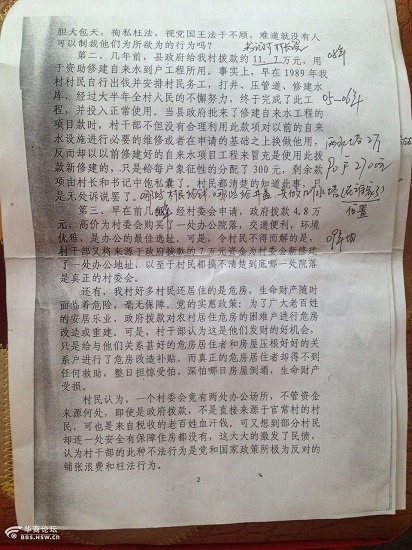 胆大包天、徇私枉法,视党国王法于不顾,难道就没有人
可以制裁他们为所欲为的行为吗?
第二、几年前,县政府给我村拨款约11.7万元,用
于资助修建自来水到户工程所用。事实上,早在1989年我
村村民自行出钱并安排村民务工,打井、压管道、修建水
库,经过大半年全村人民的不懈努力,终于完成了此工
程,并投入正常使用。当县政府批来了修建自来水工程的
项目款时,村干部不但没有合理利用此款项对以前的自来
水设施进行必要的维修或者在申请的基础之上换做他用,
反而却以以前修建好的自来水项目工程来冒充是使用此拨
款新修建的。只是给每户象征性的分配了300元,剩余款
项由村长和书记中饱私囊了,村民都清楚的知道此事,只
是无处诉说罢了。
第三、早在前几年,经村委会申请,政府拨款4.8万
元,高价为村委会购买了一处办公院落,交通便利,环境
优雅,是办公的最佳选址。可是,令村民不得而解的是,
村干部又将来源于政府拨款的7万元资金为村委会新修建
了一处办公地址,以至于村民都搞不清楚到底哪一处院落
是真正的村委会。
还有,我村好多村民还居住的是危房,生命财产随时
面临着危险,毫无保障。党的实惠政策:为了广大老百姓
的安居乐业,政府拨款对农村居住危房的困难户进行危房
改造或重建。可是,村干部认为这是他们发财的好机会,
只是给与他们关系甚好的危房居住者和房屋压根好好的关
系户进行了危房改造补贴,而真正的危房居住者却得不到
任何救助,整日担惊受怕,深怕哪日房屋倒塌,生命财产
受损。
村民认为,一个村委会竟有两处办公场所,不管资金
来源何处,即使是政府拨款,不是直接来源于官常村的村
民,可也是来自税收的老百姓血汗钱。可又想到部分村民
却连一处安全有保障住房都没有,这大大的激发了民愤,
认为村干部的此种不法行为是党和国家政策所极为反对的
铺张浪费和枉法行为。
08年
05—06年
90户 2700元
位置
09年
2
华商论坛
BBS.HSW.CN